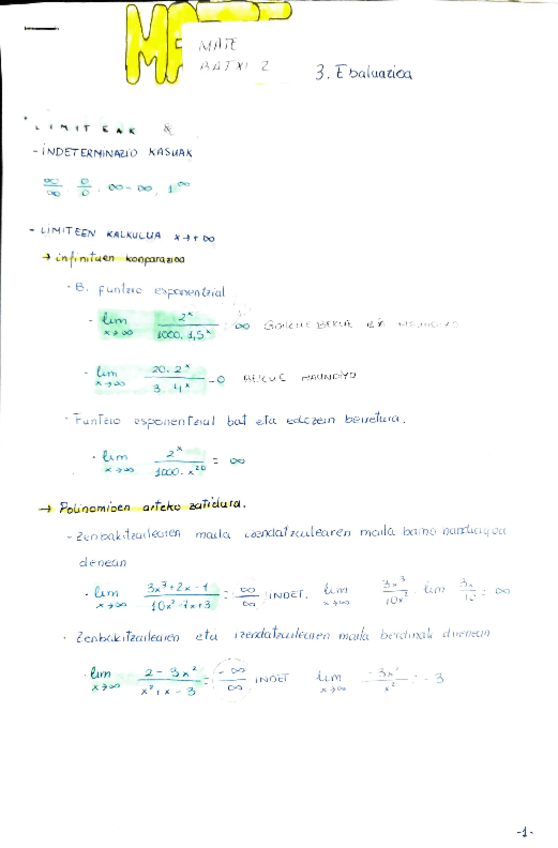 MA
MATE
BATXI 2
3. Ebaluazioa
LIMITEAK
- INDETERMINAZIO KASUAK
∞/∞ 0/0, ∞-∞, 1^∞
- LIMITEEN KALKULUA x→+∞
→ infinituen konparazioa
· B. funtzio esponentzial
· lim x→∞ 2^x / 1000·1,5^x = ∞
· lim x→∞ 20·2^x / 3·4^x = 0
· Funtzio esponentzial bat eta edozein berretura.
· lim x→∞ 2^x / 1000·x^20 = ∞
→ Polinomioen arteko zatidura.
- Zenbakitzailearen maila izendatzailearen maila baino handiagoa
denean
· lim x→∞ 3x³+2x-1 / 10x²-7x+3 = ∞/∞ INDET. lim x→∞ 3x³/10x² lim 3x/10 = ∞
· Zenbakitzailearen eta izendatzailearen maila berdinak direnean
· lim x→∞ 2-3x² / x²+x-3 = -∞/∞ INDET lim x→∞ -3x²/x² = -3
-1-